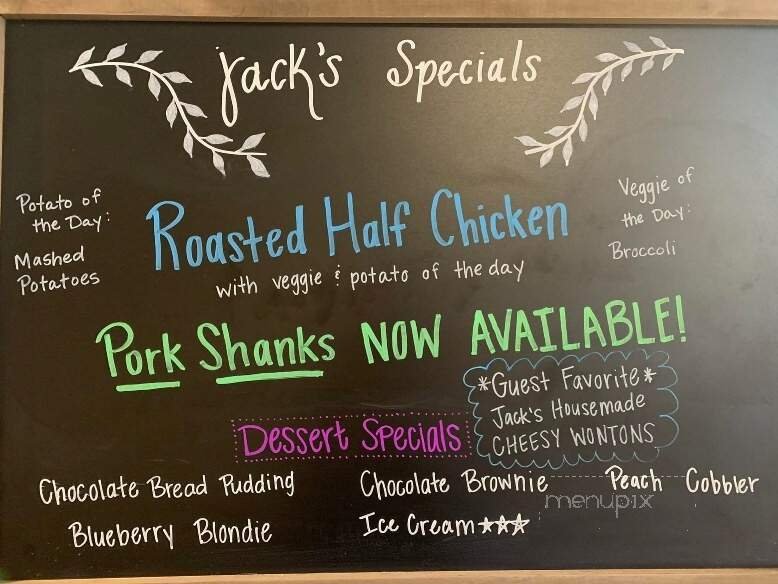 Jack's Specials
Potato of
the Day:
Mashed
Potatoes
Roasted Half Chicken
with veggie & potato of the day
Veggie of
the Day:
Broccoli
Pork Shanks NOW AVAILABLE!
*Guest Favorite*
Jack's Housemade
CHEESY WONTONS
Dessert Specials
Chocolate Bread Pudding
Chocolate Brownie
Peach Cobbler
Blueberry Blondie
Ice Cream★★★
menupix